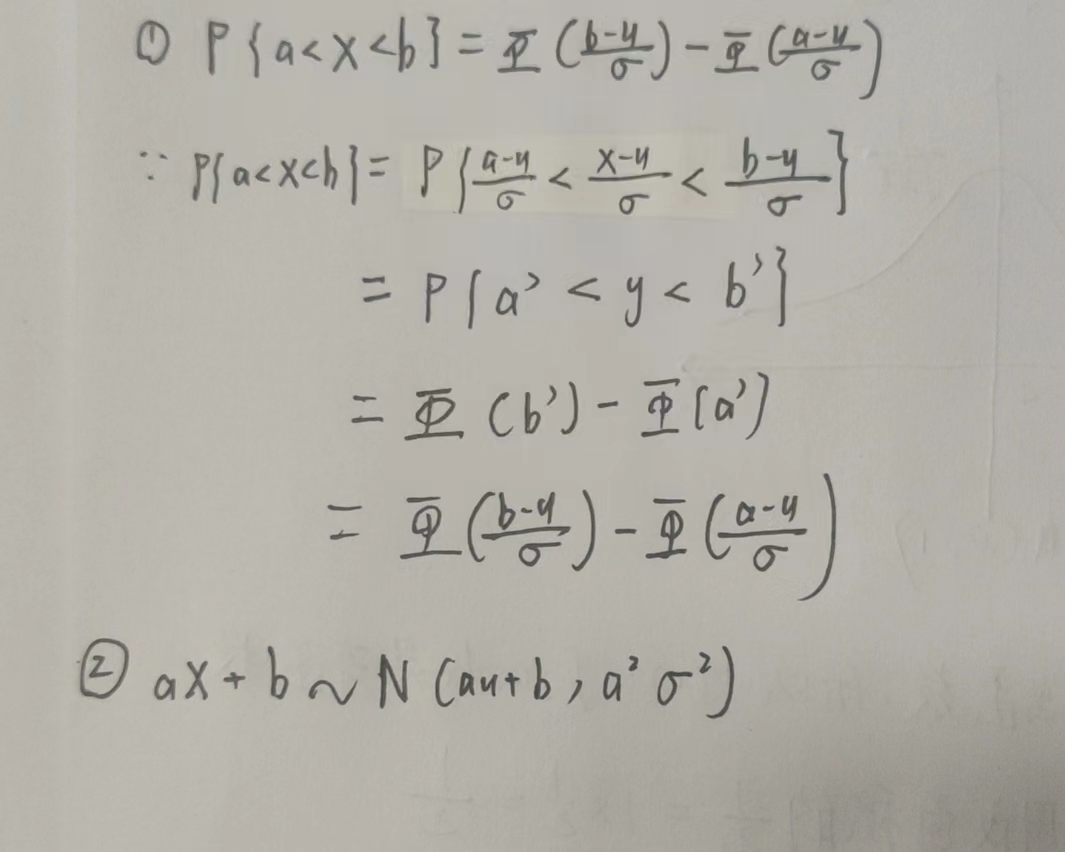 ① P{a<X<b} = Φ(b-μ/σ) - Φ(a-μ/σ)
∵ P{a<X<b} = P{a-μ/σ < X-μ/σ < b-μ/σ}
= P{a' < y < b'}
= Φ(b') - Φ(a')
= Φ(b-μ/σ) - Φ(a-μ/σ)
② aX + b ~ N(aμ+b, a²σ²)